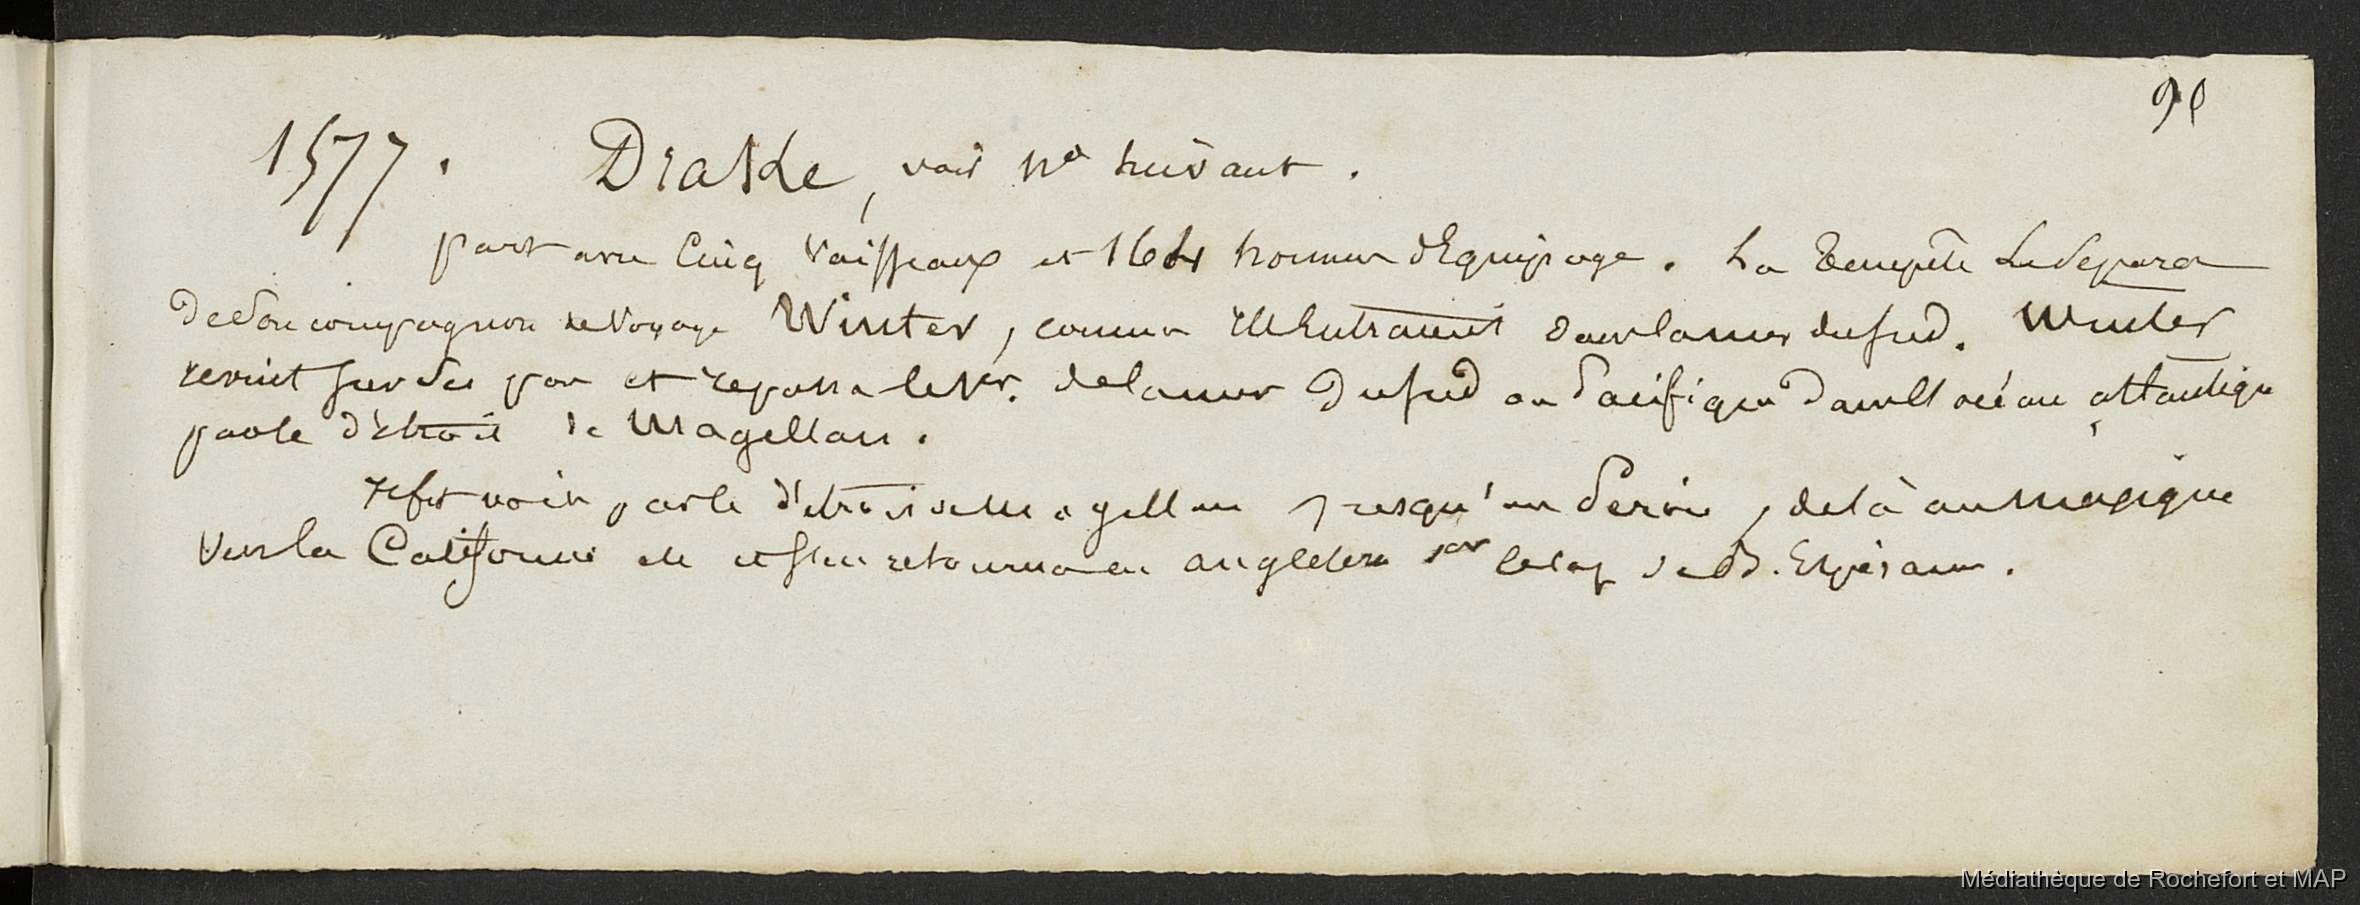 95
1577. Drake, voir n° suivant.
part avec Cinq Vaisseaux et 164 hommes d'Equipage. La Tempête Le separa
De Son compagnon de Voyage Winter, comme Ils Entraient dans la mer du sud. Winter
revint sur Ses pas et repassa le 1er. de la mer Du sud ou Pacifique Dans l'océan attantique
par le détroit de Magellan.
Il fit voile par le détroit de Magellan jusqu'au Perou, de là au Mexique
Vers la Californie et s'en retourna en angleterre par le Cap de B. Espérance.
Médiathèque de Rochefort et MAP